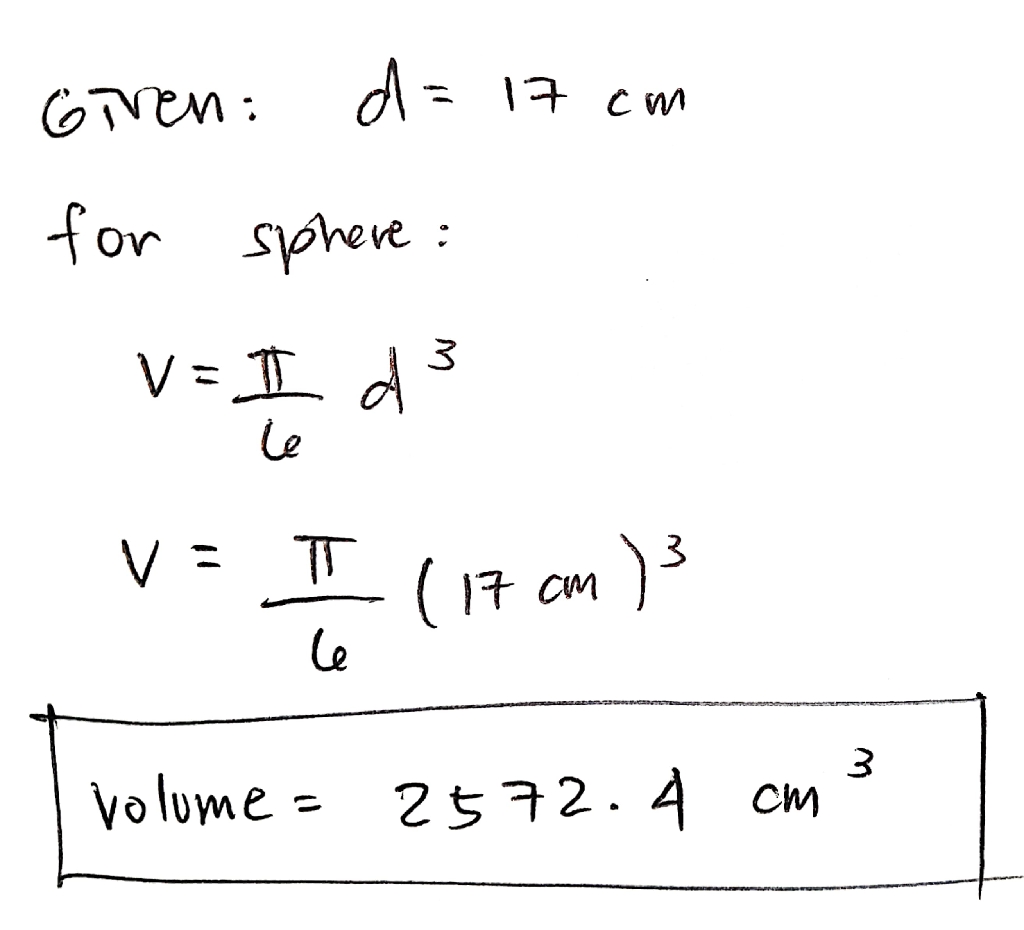 Given: d = 17 cm
for sphere:
V = π/6 d³
V = π/6 (17 cm)³
Volume = 2572.4 cm³